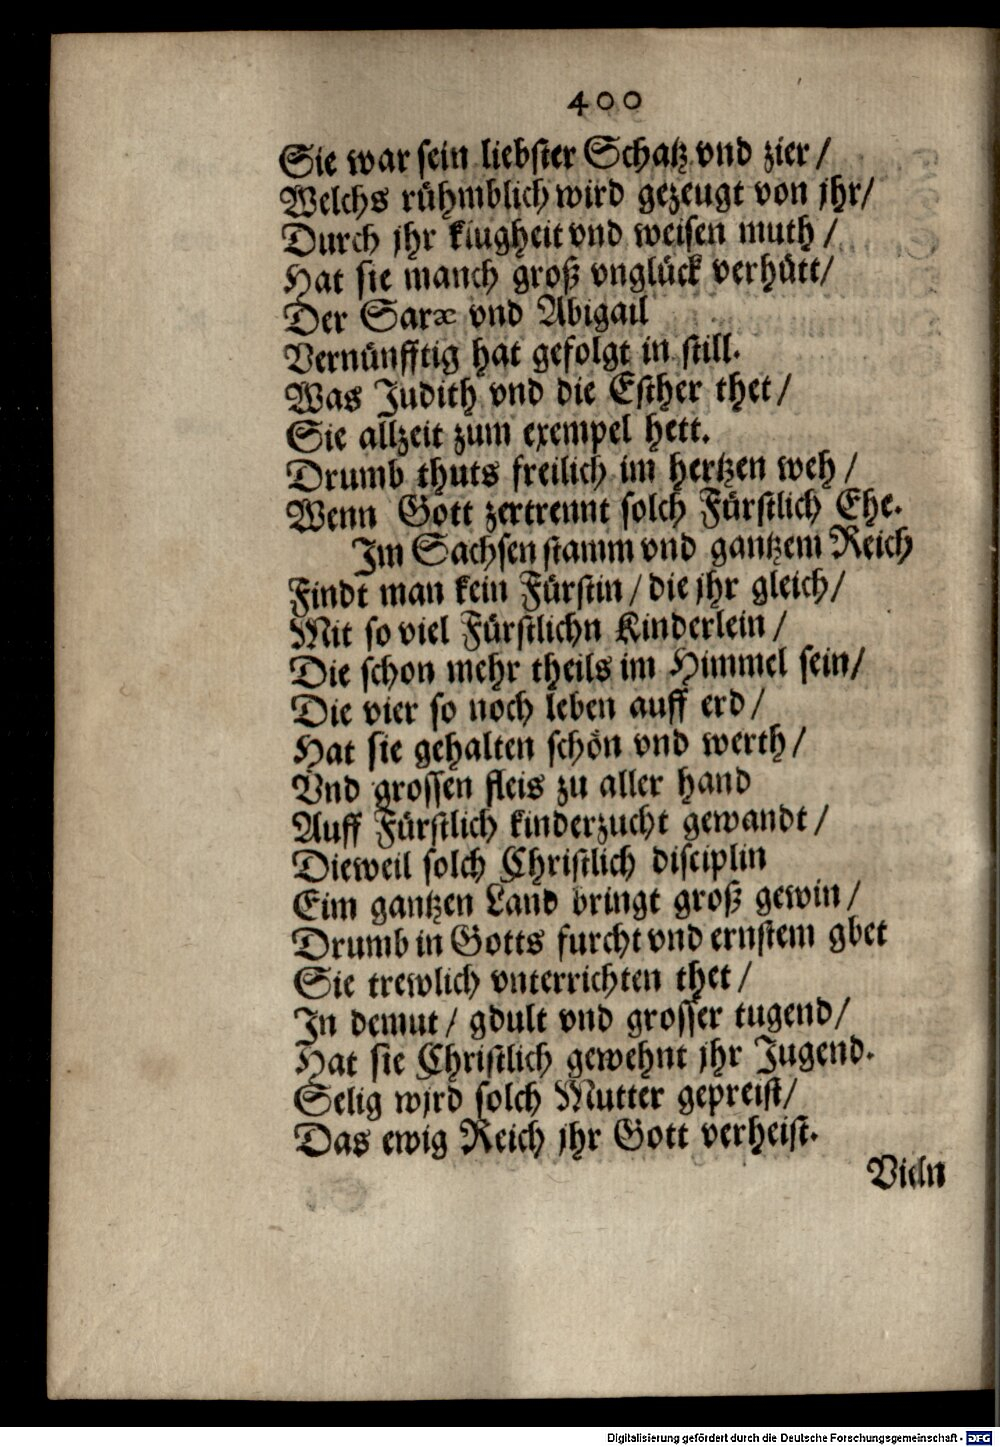 400
Sie war sein liebster Schatz vnd zier /
Welchs rühmblich wird gezeugt von jhr/
Durch jhr klugheit vnd weisen muth /
Hat sie manch groß vnglück verhütt/
Der Saræ vnd Abigail
Vernünfftig hat gefolgt in still.
Was Judith vnd die Esther thet /
Sie allzeit zum exempel hett.
Drumb thuts freilich im hertzen weh /
Wenn Gott zertrennt solch Fürstlich Ehe.
Im Sachsen stamm vnd gantzem Reich
Findt man kein Fürstin / die jhr gleich /
Mit so viel Fürstlichn Kinderlein /
Die schon mehr theils im Himmel sein/
Die vier so noch leben auff erd /
Hat sie gehalten schön vnd werth /
Vnd grossen fleis zu aller hand
Auff Fürstlich kinderzucht gewandt /
Dieweil solch Christlich disciplin
Eim gantzen Land bringt groß gewin /
Drumb in Gotts furcht vnd ernstem gbet
Sie trewlich vnterrichten thet /
In demut / gdult vnd grosser tugend/
Hat sie Christlich gewehnt jhr Jugend.
Selig wjrd solch Mutter gepreist/
Das ewig Reich jhr Gott verheist.
Vieln
Digitalisierung gefördert durch die Deutsche Forschungsgemeinschaft - DFG